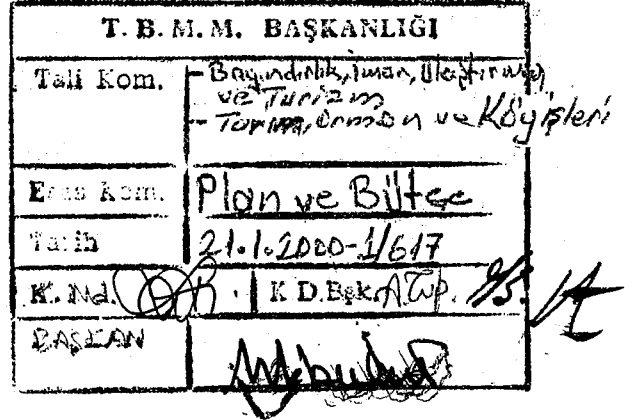 T. B. M. M. BAŞKANLIĞI
Tali Kom. - Bayındırlık, İmar, Ulaştırma
ve Turizm
- Tarım, Orman ve Köyişleri
Esas Kom. Plan ve Bütçe
Tarih 21.1.2000-1/617
K. Md. K D. Bşk.
BAŞKAN